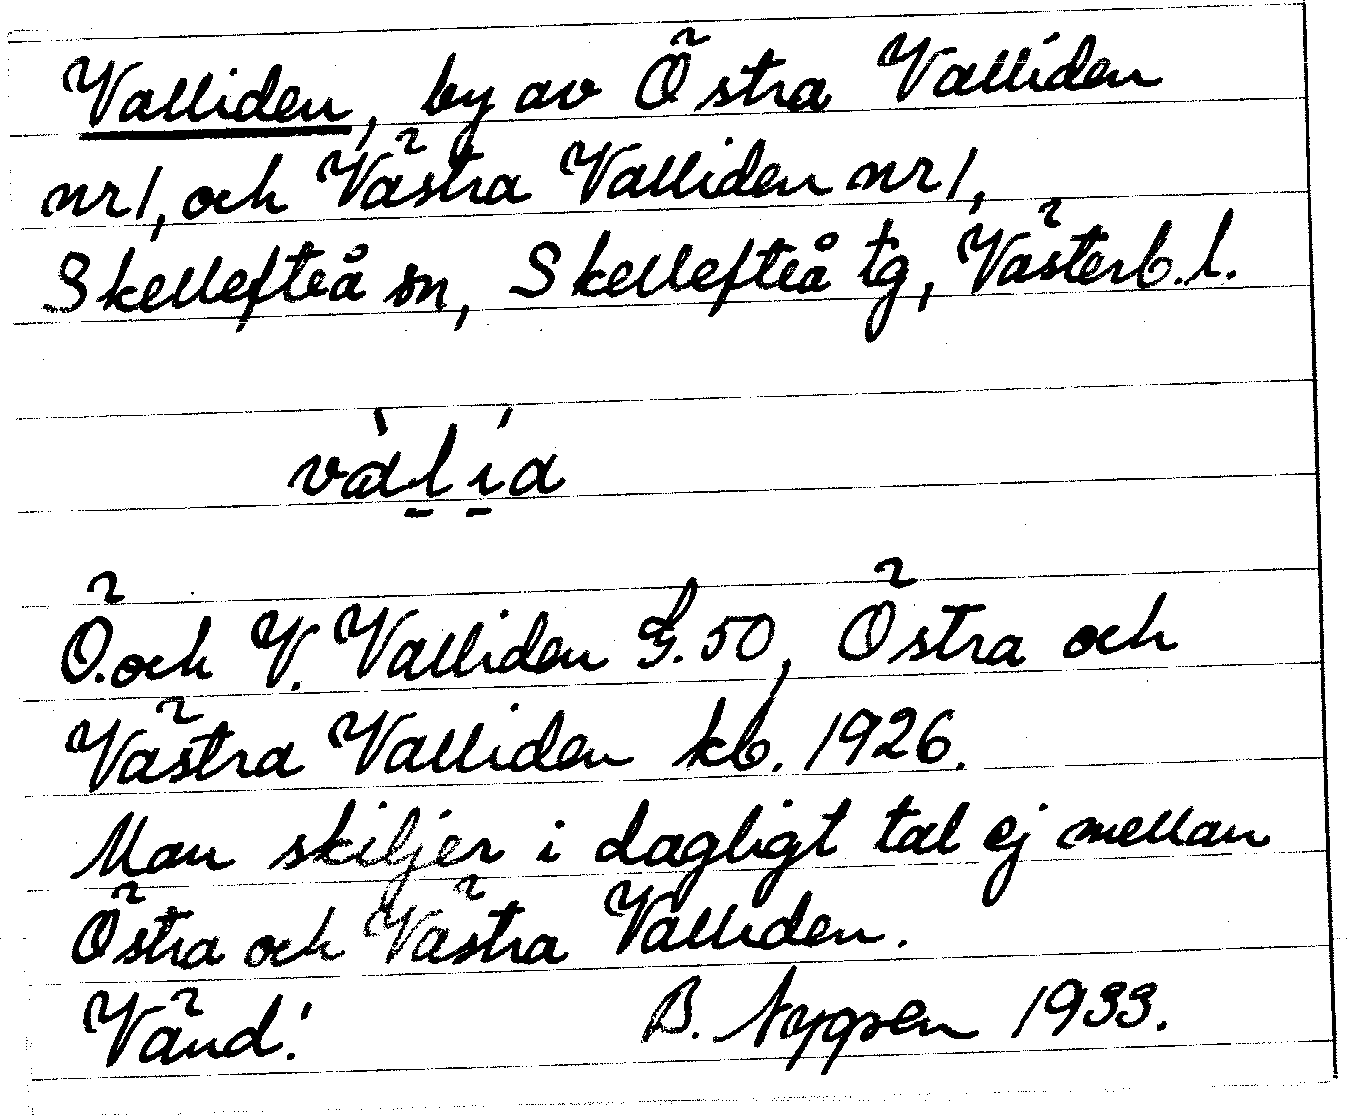 Valliden, by av Östra Valliden
nr 1, och Västra Valliden nr 1,
Skellefteå sn, Skellefteå tg, Västerb. l.
vàlía
Ö. och V. Valliden G. 50, Östra och
Västra Valliden kb. 1926.
Man skiljer i dagligt tal ej mellan
Östra och Västra Valliden.
Vänd! B. Nygren 1933.